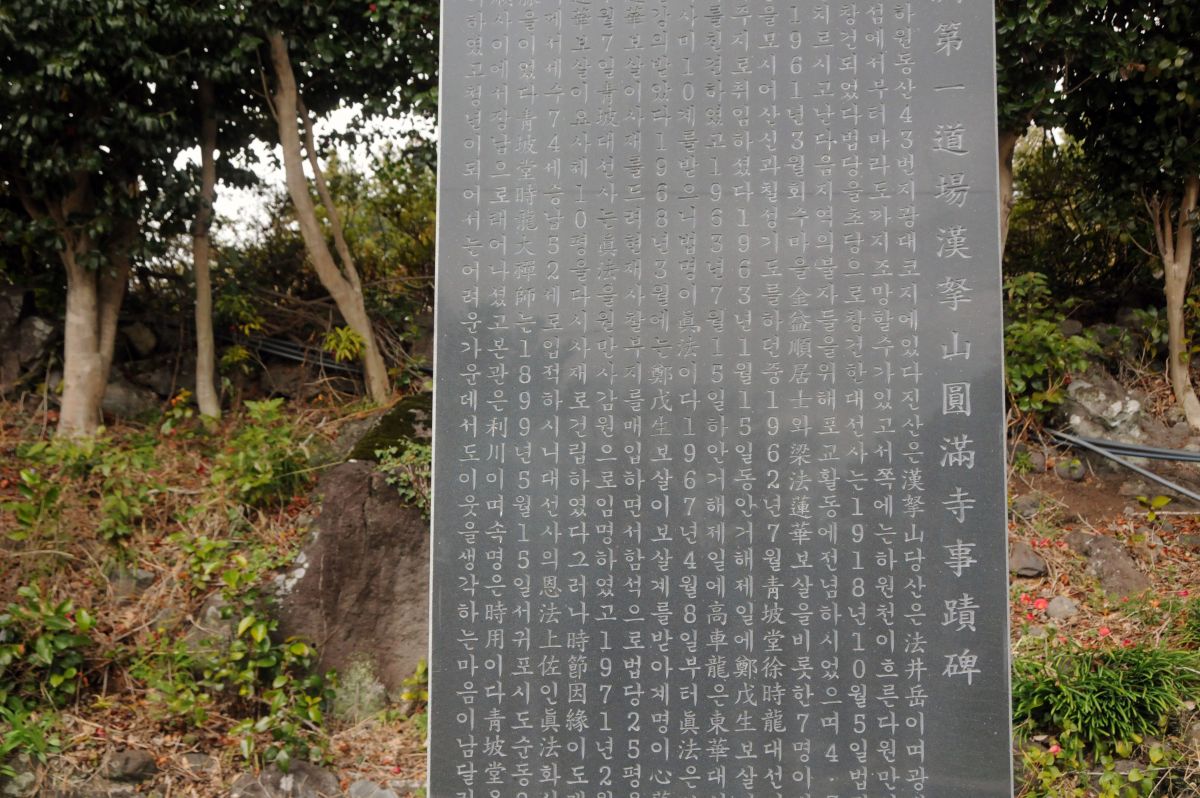 第一道場漢拏山圓滿寺事蹟碑
하원동산43번지광대코지에있다진산은漢拏山당산은法井岳이며광
섬에서부터마라도까지조망할수가있고서쪽에는하원천이흐른다원만
창건되었다법당을초당으로창건한대선사는1918년10월5일법
치르시고난다음지역의불자들을위해포교활동에전념하시었으며4.
1961년3월회수마을金益順居士와梁法蓮華보살을비롯한7명이
을모시어산신과칠성기도를하던중1962년7월青坡堂徐時龍대선
주지로취임하셨다1963년1월15일동안거해제일에鄭戊生보살
를친견하였고1963년7월15일하안거해제일에高車龍은東華대
사미10계를받으니법명이眞法이다1967년4월8일부터眞法은
강의받았다1968년3월에는鄭戊生보살이보살계를받아계명이心
華보살이사재를드려현재사찰부지를매입하면서함석으로법당25평
월7일青坡대선사는眞法을원만사감원으로임명하였고1971년2
華보살이요사체10평을다시사재로건립하였다그러나時節因緣이도
세서수74세승납52세로입적하시니대선사의恩法上佐인眞法화
을이었다青坡堂時龍大禪師는1899년5월15일서귀포시도순동
사이에서장남으로태어나셨고본관은利川이며속명은時用이다青坡堂
하였고청년이되어서는어려운가운데서도이웃을생각하는마음이남달